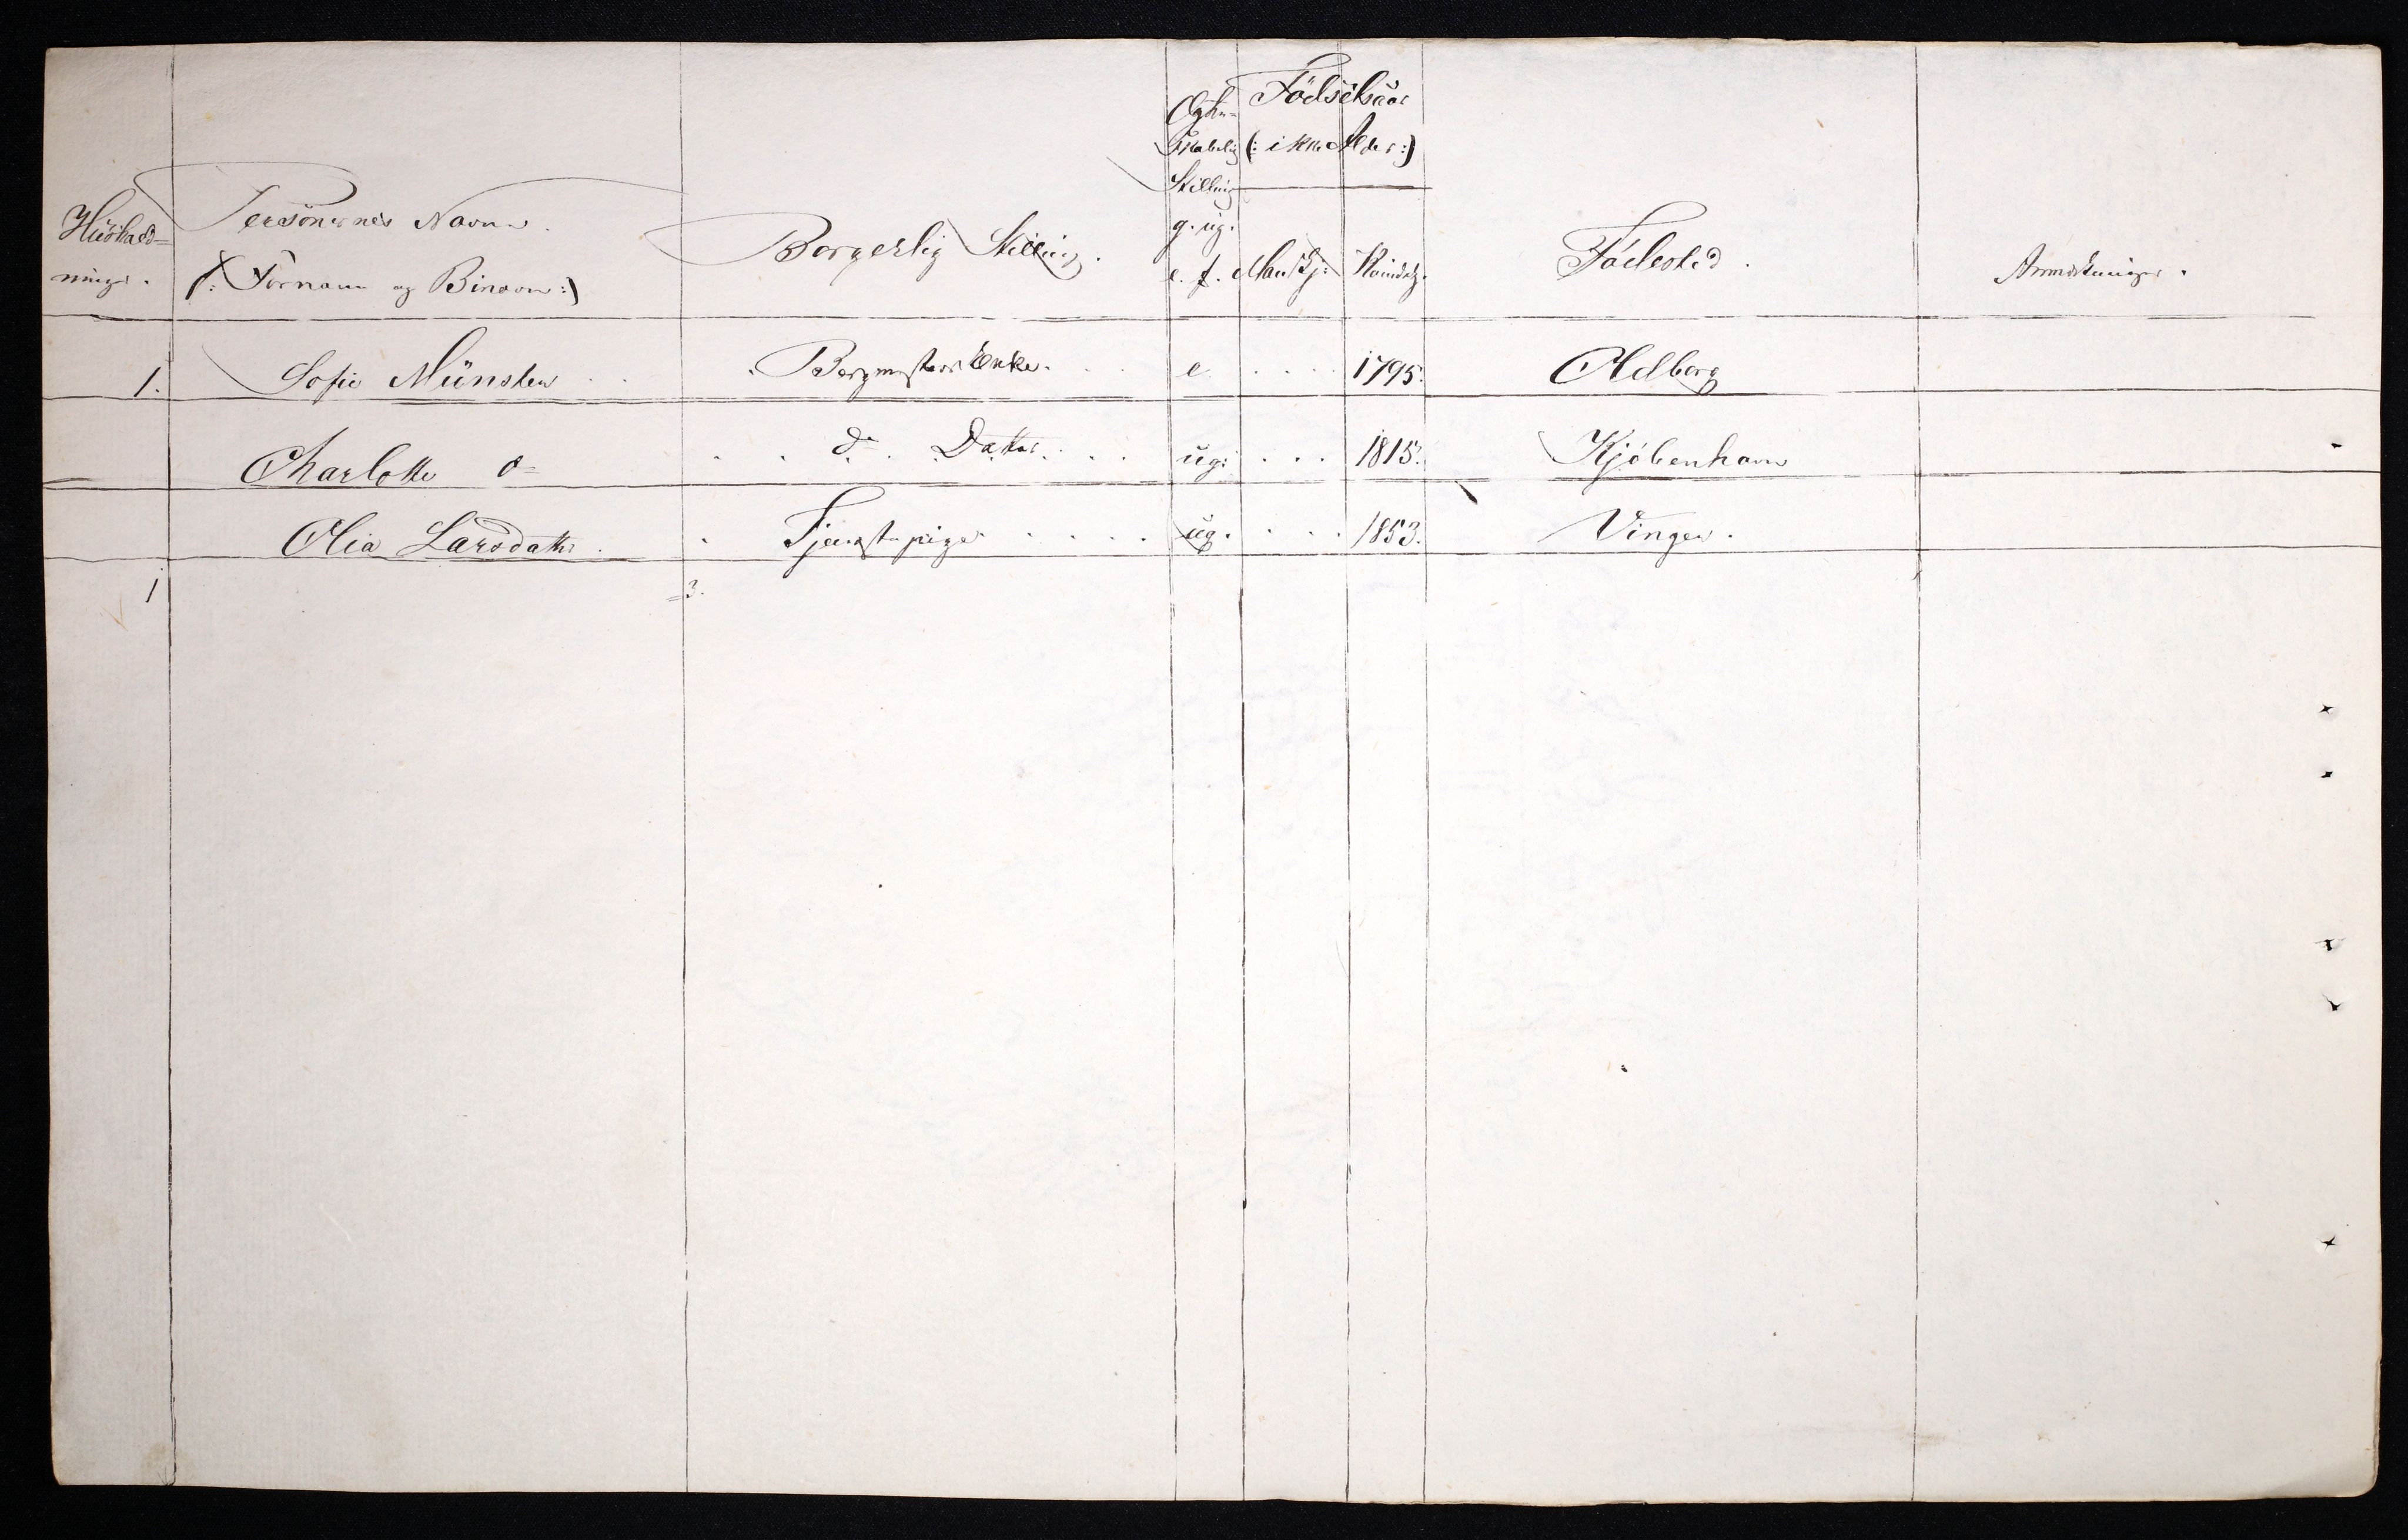 Hüshold-
ninger.
Personernes Navne.
(: Fornavn og Binavn :)
Borgerlig Stilling.
Ægte-
skabelig
Stilling
g. ug.
e. f.
Födselsaar
(: ikke Alder :)
Mandkj: Kvindekj.
Födested.
Anmærkninger.
1. Sofie Münster . . . Bergmesters Enke. . . e . . . . 1795. Aalborg
Charlotte do . . do. Datter. . . . ug: . . . 1815. Kjöbenhavn
Olia Larsdatter . . Tjenestepige . . . . . ug. . . . 1853. Vinger.
1 =3.